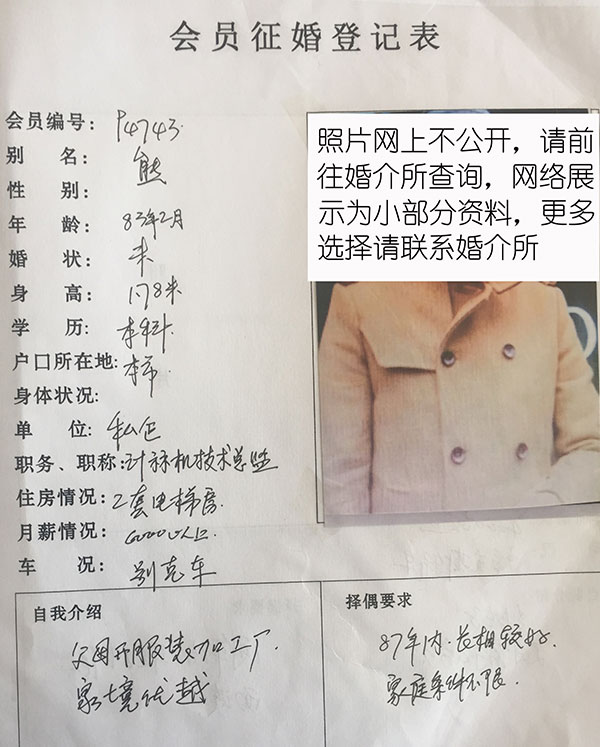 会员征婚登记表
会员编号: P4743
别 名: 熊
性 别:
年 龄: 83年2月
婚 状: 未
身 高: 1.78米
学 历: 本科
户口所在地: 本市
身体状况:
单 位: 私企
职务、职称: 计算机技术总监
住房情况: 2套电梯房
月薪情况: 6000以上
车 况: 别克车
照片网上不公开，请前
往婚介所查询，网络展
示为小部分资料，更多
选择请联系婚介所
自我介绍
父母开服装加工厂.
家境优越
择偶要求
87年内.长相较好.
家庭条件不限.